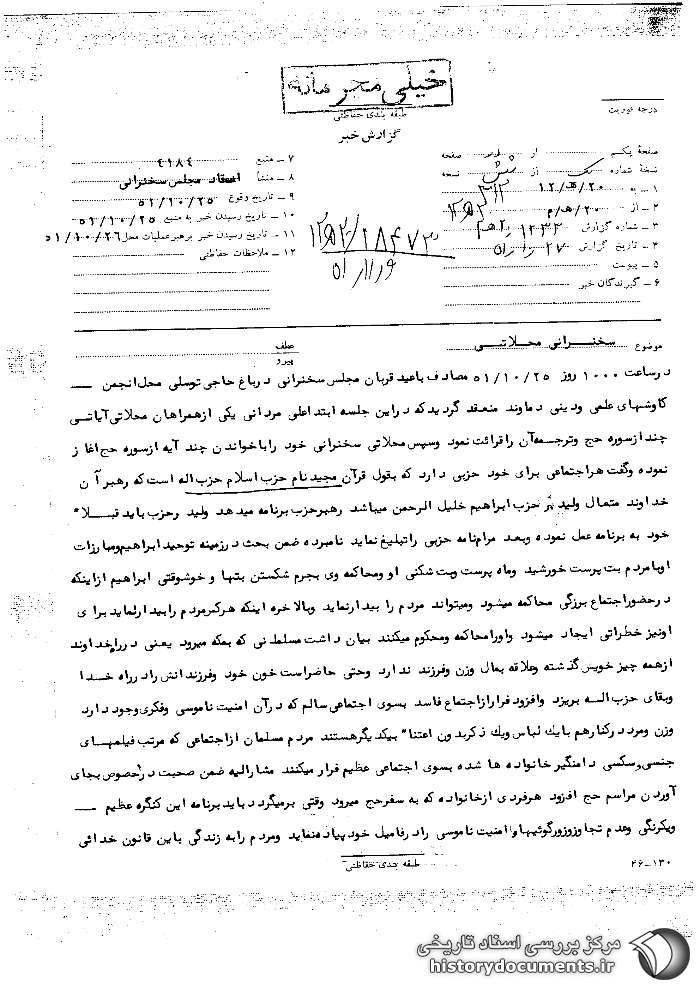 خیلی محرمانه
طبقه بندی حفاظتی
گزارش خبر
درجه فوریت
صفحه یکم از صفحه
نسخه شماره یک از شش نسخه
۱ ـ به ۳۱۲
۲ ـ از ۲۰/ه‍ م
۳ ـ شماره گزارش ۱۲۳۲
۴ ـ تاریخ گزارش
۵ ـ پیوست
۶ ـ گیرندگان خبر
۷ ـ منبع ٤١٨٤
۸ ـ منشأ مجلس سخنرانی
۹ ـ تاریخ وقوع ۵۱/۱۰/۲۵
۱۰ ـ تاریخ رسیدن خبر به منبع ۵۱/۱۰/۲۵
۱۱ ـ تاریخ رسیدن خبر برهبر عملیات محل ۵۱/۱۰/۲۶
۱۲ ـ ملاحظات حفاظتی
موضوع سخنرانی محلاتی
عطف
پیرو
در ساعت ۱۰۰۰ روز ۵۱/۱۰/۲۵ مصادف با عید قربان مجلس سخنرانی در باغ حاجی توسلی محل انجمن ـــ
کاوشهای علمی و دینی دماوند منعقد گردید که در این جلسه ابتدا علی مردانی یکی از همراهان محلاتی آیاتی
چند از سوره حج و ترجمه آن را قرائت نمود و سپس محلاتی سخنرانی خود را با خواندن چند آیه از سوره حج آغاز
نموده و گفت هر اجتماعی برای خود حزبی دارد که بقول قرآن مجید نام حزب اسلام حزب اله است که رهبر آن
خداوند متعال ولیدر حزب ابراهیم خلیل الرحمن میباشد رهبر حزب برنامه میدهد ولیدر حزب باید قبلا"
خود به برنامه عمل نموده و بعد مرام نامه حزبی را تبلیغ نماید نامبرده ضمن بحث در زمینه توحید ابراهیم و مبارزات
او با مردم بت پرست خورشید و ماه پرست و بت شکنی او و محاکمه وی بجرم شکستن بتها و خوشوقتی ابراهیم از اینکه
در حضور اجتماع بزرگی محاکمه میشود و میتواند مردم را بیدار نماید و بالاخره اینکه هر کس مردم را بیدار نماید برای
او نیز خطراتی ایجاد میشود و او را محاکمه و محکوم میکنند بیان داشت مسلمانی که بمکه میرود یعنی در راه خداوند
از همه چیز خویش گذشته و علاقه بمال وزن و فرزند ندارد و حتی حاضر است خون خود و فرزندانش را در راه خدا
و بقای حزب اله بریزد و افزود فرار از اجتماع فاسد بسوی اجتماعی سالم که در آن امنیت ناموسی و فکری وجود دارد
وزن و مرد در کنار هم با یک لباس و یک ذکر بدون اعتنا" بیکدیگر هستند مردم مسلمان از اجتماعی که مرتب فیلمهای
جنسی و سکسی دامنگیر خانواده ها شده بسوی اجتماعی عظیم فرار میکنند مشارالیه ضمن صحبت در خصوص بجای
آوردن مراسم حج افزود هر فردی از خانواده که به سفر حج میرود وقتی برمیگردد باید برنامه این کنگره عظیم ـــ
و یکرنگی و عدم تجاوز و زورگوئیها و امنیت ناموسی را در فامیل خود پیاده نماید و مردم را به زندگی باین قانون خدائی
طبقه بندی حفاظتی
۱۳۰-۴۶
مرکز بررسی اسناد تاریخی
historydocuments.ir